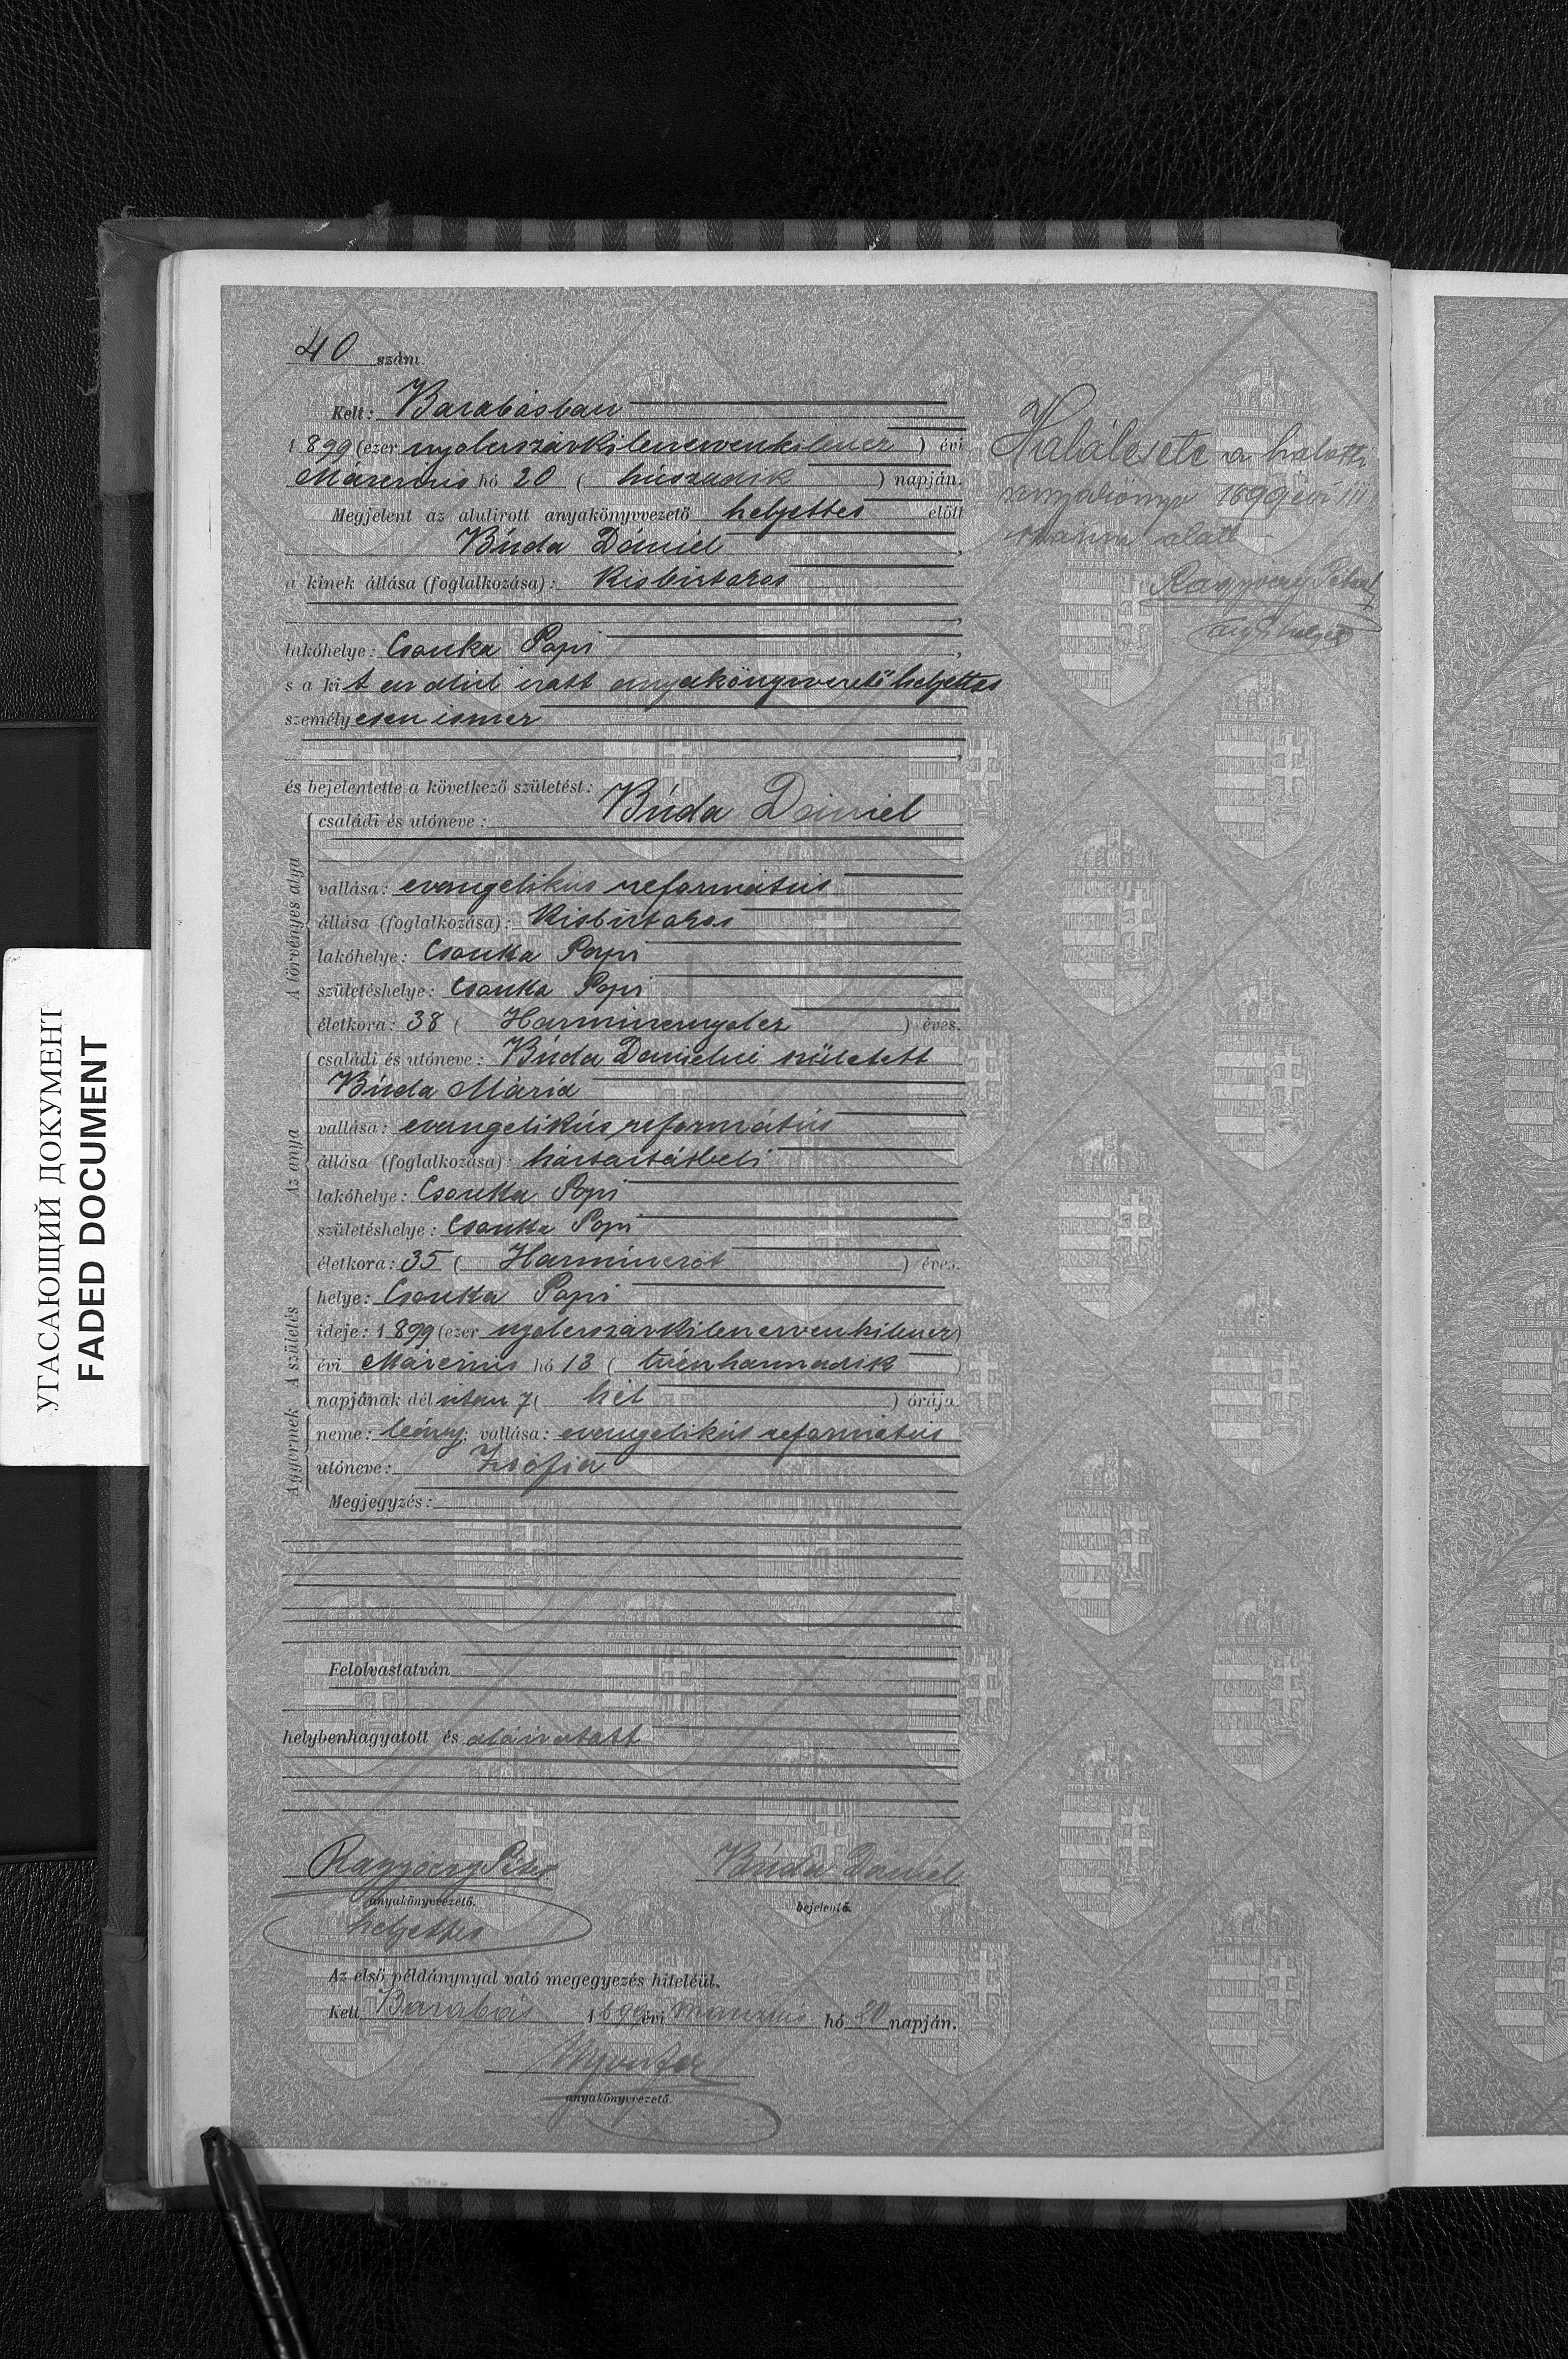 40 szám.
Kelt: Barabásban
1899 (ezer nyolcszázkilencvenkilencz) évi
Márczius hó 20 (huszadik) napján.
Megjelent az alulirott anyakönyvvezető helyettes előtt
Búda Dániel,
a kinek állása (foglalkozása): Kisbirtokos
lakóhelye: Csonka Papi,
s a kit az alúl irott anyakönyvvezető helyettes
személyesen ismer
és bejelentette a következő születést:
A törvényes atya
családi és utóneve: Búda Dániel
vallása: evangelikús református
állása (foglalkozása): Kisbirtokos
lakóhelye: Csonka Papi
születéshelye: Csonka Papi
életkora: 38 (Harmincznyolcz) éves.
Az anya
családi és utóneve: Búda Dánielné született
Búda Mária
vallása: evangelikús református
állása (foglalkozása): háztartásbeli
lakóhelye: Csonka Papi
születéshelye: Csonka Papi
életkora: 35 (Harminczöt) éves.
A születés
helye: Csonka Papi
ideje: 1899 (ezer nyolcszázkilenczvenkilencz)
évi Márczius hó 13 (tizenharmadik)
napjának dél után 7 (hét) órája.
A gyermek
neme: leány; vallása: evangelikús református
utóneve: Zsófia
Megjegyzés:
Felolvastatván
helybenhagyatott és aláiratott
Péter
anyakönyvvezető.
helyettes
Búda Dániel
bejelentő.
Az első példánynyal való megegyezés hiteléül.
Kelt Barabás 1899 évi márczius hó 20 napján.
anyakönyvvezető.
Halálesete a halotti
anyakönyv 1899 évi
szám alatt
УГАСАЮЩИЙ ДОКУМЕНТ
FADED DOCUMENT